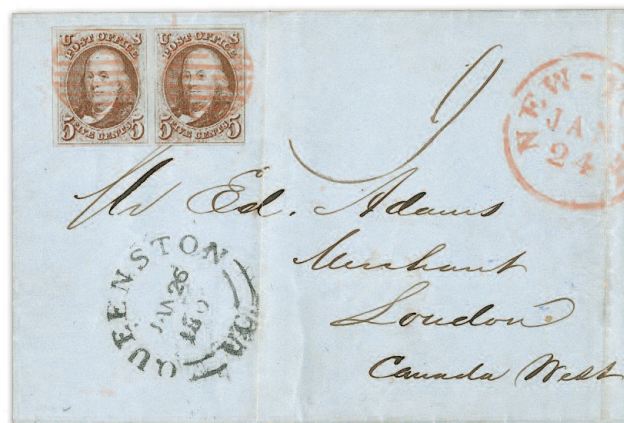 U S
POST OFFICE
5 FIVE CENTS 5
U S
POST OFFICE
5 FIVE CENTS 5
NEW-Y
JAN
24
Mr Ed. Adams
Merchant
London
Canada West
QUEENSTON
JAN 26
U.C